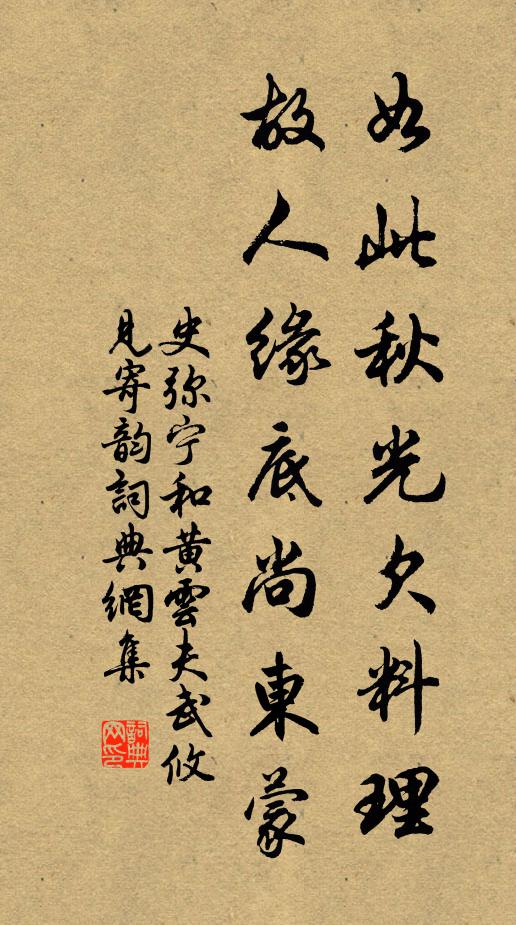 如此秋光欠料理
故人緣底尚東蒙
史弥宁和黄雲夫武攸
見寄韵詞典網集
詞典网印